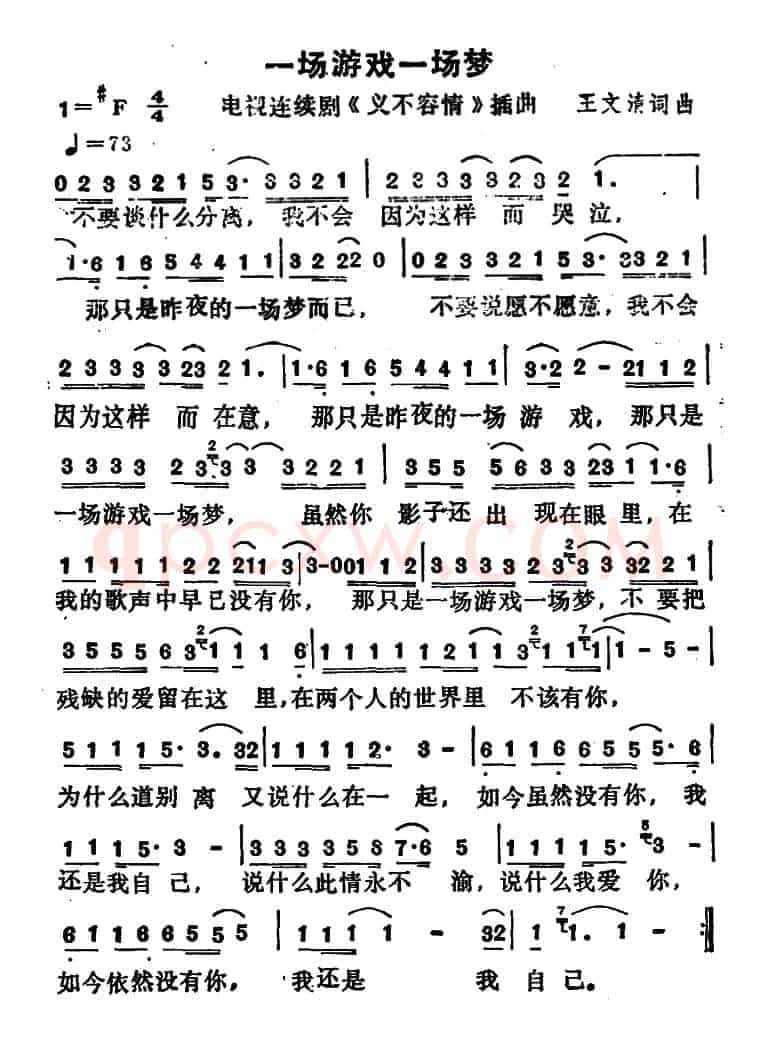 一场游戏一场梦
1=#F 4/4 电视连续剧《义不容情》插曲 王文清词曲
♩=73
0 2 3 3 3 2 1 5 3· 3 3 2 1 | 2 2 3 3 3 3 2 3 2 1. |
不要谈什么分离，我不会 因为这样 而 哭泣，
1·6 1 6 5 4 4 1 1 | 3 2 22 0 | 0 2 3 3 3 2 1 5 3· 3 3 2 1 |
那只是昨夜的一场梦而已， 不要说愿不愿意，我不会
2 3 3 3 3 23 2 1. | 1·6 1 6 5 4 4 1 1 | 3·2 2 - 21 1 2 |
因为这样 而 在意， 那只是昨夜的一场 游 戏，那只是
3 3 3 3 2 3 3 3 3 2 2 1 | 3 5 5 5 6 3 3 23 1 1·6 |
一场游戏一场梦， 虽然你 影子还 出 现在眼里，在
1 1 1 1 1 2 2 211 3 | 3-001 1 2 | 3 3 3 3 2 3 3 3 3 2 2 1 |
我的歌声中早已没有你， 那只是一场游戏一场梦，不 要把
3 5 5 5 6 3 1 1 1 6 | 1 1 1 1 1 2 1 1 3 1 1 1 | 1 - 5 - |
残缺的爱留在这 里，在两个人的世界里 不该有你，
5 1 1 1 5· 3. 32 | 1 1 1 1 2· 3 - | 6 1 1 6 6 5 5 5· 6 |
为什么道别 离 又说什么在一 起，如今虽然没有你，我
1 1 1 5· 3 - | 3 3 3 3 5 5 7·6 5 | 1 1 1 1 5· 3 - |
还是我自己， 说什么此情永不 渝，说什么我爱 你，
6 1 1 6 6 5 5 5 | 1 1 1 1 - 32 | 1 1. 1 - :||
如今依然没有你， 我还是 我 自己。